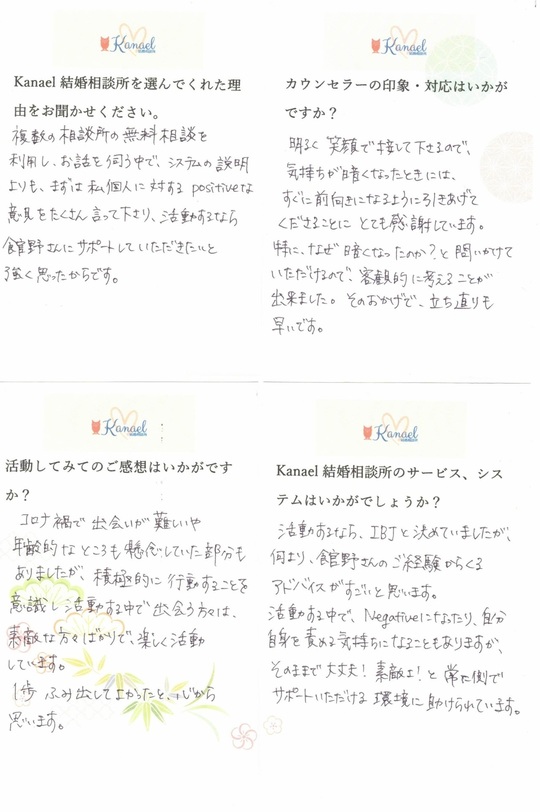 Kanael
Kanael 結婚相談所を選んでくれた理
由をお聞かせください。
複数の相談所の無料相談を
利用し、お話を伺う中で、システムの説明
よりも、まずは私個人に対する positiveな
意見をたくさん言って下さり、活動するなら
館野さんにサポートしていただきたいと
強く思ったからです。
Kanael
カウンセラーの印象・対応はいかが
ですか？
明るく笑顔で接して下さるので、
気持ちが暗くなったときには、
すぐに前向きになるように引きあげて
くださることにとても感謝しています。
特に、なぜ暗くなったのか？と問いかけて
いただけるので、客観的に考えることが
出来ました。そのおかげで、立ち直りも
早いです。
Kanael
活動してみてのご感想はいかがです
か？
コロナ禍で出会いが難しいや
年齢的なところも懸念していた部分も
ありましたが、積極的に行動することを
意識し活動する中で出会う方々は、
素敵な方々ばかりで、楽しく活動
しています。
1歩ふみ出してよかったと、心から
思います。
Kanael
Kanael 結婚相談所のサービス、シス
テムはいかがでしょうか？
活動するなら、IBJと決めていましたが、
何より、館野さんのご経験からくる
アドバイスがすごいと思います。
活動する中で、Negativeになったり、自分
自身を責める気持ちになることもありますが、
そのままで大丈夫！素敵よ！と常に側で
サポートいただける環境に助けられています。